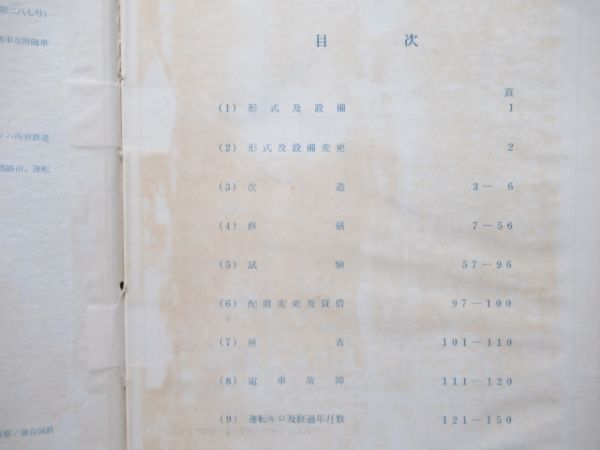 目次
頁
(1) 形式及設備 1
(2) 形式及設備変更 2
(3) 改造 3―6
(4) 修繕 7―56
(5) 試験 57―96
(6) 配置変更及貸借 97―100
(7) 検査 101―110
(8) 電車故障 111―120
(9) 運転キロ及経過年月数 121―150
第二八七号)
車及附随車
ハ所管鉄道
経由、運転